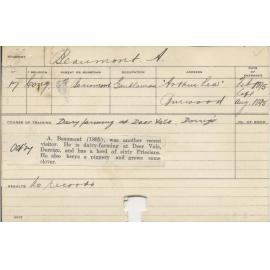 STUDENT
Beaumont A.
RELIGION
PARENT OR GUARDIAN
OCCUPATION
ADDRESS
DATE OF ENTRANCE
17 Cong Beaumont Gentleman "Arthur Lea" Feb 1885
Burwood Aug 1885
COURSE OF TRAINING Dairy farming at Deer Vale. Dorrigo
A. Beaumont (1885), was another recent
visitor. He is dairy-farming at Deer Vale,
Dorrigo, and has a herd of sixty Friesians.
He also keeps a piggery and grows some
clover.
RESULTS No records